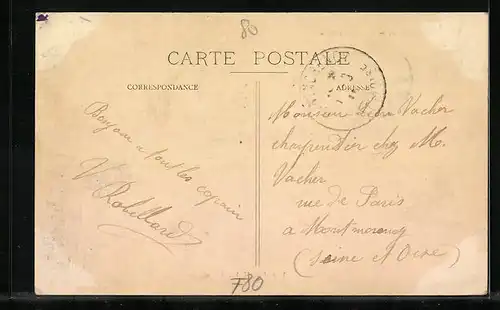 80
CARTE POSTALE
CORRESPONDANCE
ADRESSE
Bonjour a tout les copain
V. Robillard
Monsieur Léon Vacher
charpentier chez M.
Vacher
rue de Paris
a Montmorency
(Seine et Oise)
780